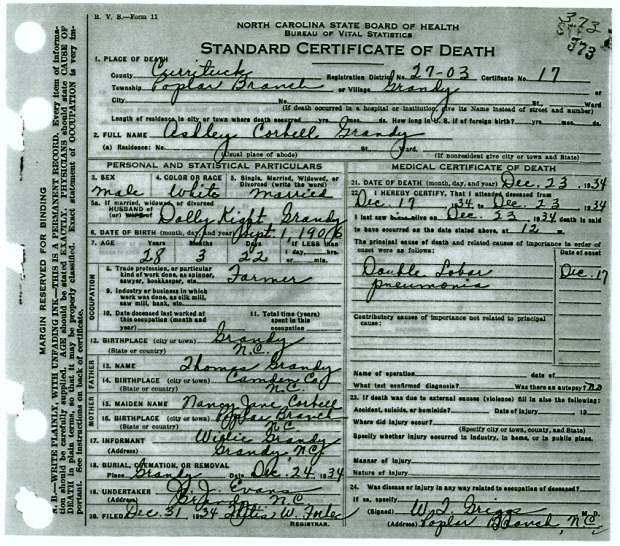 R. V. S.—Form 11
NORTH CAROLINA STATE BOARD OF HEALTH
BUREAU OF VITAL STATISTICS
STANDARD CERTIFICATE OF DEATH
373
573
MARGIN RESERVED FOR BINDING
N. B.—WRITE PLAINLY, WITH UNFADING INK—THIS IS A PERMANENT RECORD. Every item of information should be carefully supplied. AGE should be stated EXACTLY. PHYSICIANS should state CAUSE OF DEATH in plain terms, so that it may be properly classified. Exact statement of OCCUPATION is very important. See instructions on back of certificate.
1. PLACE OF DEATH
County Currituck Registration District No. 27-03 Certificate No. 17
Township Poplar Branch or Village Grandy or
City No. St., Ward
(If death occurred in a hospital or institution, give its Name instead of street and number)
Length of residence in city or town where death occurred yrs. mos. ds. How long in U. S. if of foreign birth? yrs. mos. ds.
2. FULL NAME Ashley Corbell Grandy
(a) Residence: No. St., Ward.
(Usual place of abode) (If nonresident give city or town and State)
PERSONAL AND STATISTICAL PARTICULARS
3. SEX 4. COLOR OR RACE 5. Single, Married, Widowed, or Divorced (write the word)
male White Married
5a. If married, widowed, or divorced
HUSBAND of
(or) WIFE of Dolly Kight Grandy
6. DATE OF BIRTH (month, day, and year) Sept. 1, 1906
7. AGE Years Months Days If LESS than 1 day, hrs. or min.
28 3 22
OCCUPATION
8. Trade, profession, or particular kind of work done, as spinner, sawyer, bookkeeper, etc. Farmer
9. Industry or business in which work was done, as silk mill, saw mill, bank, etc.
10. Date deceased last worked at this occupation (month and year)
11. Total time (years) spent in this occupation
12. BIRTHPLACE (city or town) Grandy
(State or country) N.C.
FATHER
13. NAME Thomas Grandy
14. BIRTHPLACE (city or town) Camden Co
(State or country) N.C.
MOTHER
15. MAIDEN NAME Nancy Jane Corbell
16. BIRTHPLACE (city or town) Poplar Branch
(State or country) N.C.
17. INFORMANT Willie Grandy
(Address) Grandy, N.C.
18. BURIAL, CREMATION, OR REMOVAL
Place Grandy Date Dec. 24, 1934
19. UNDERTAKER J. Evans
(Address) N.C.
20. FILED Dec 31, 1934 W. Forbes
REGISTRAR.
MEDICAL CERTIFICATE OF DEATH
21. DATE OF DEATH (month, day, and year) Dec. 23, 1934
22. I HEREBY CERTIFY, That I attended deceased from
Dec. 17, 1934, to Dec 23, 1934
I last saw him alive on Dec. 23, 1934 death is said
to have occurred on the date stated above, at 12 m.
The principal cause of death and related causes of importance in order of onset were as follows: Date of onset
Double Lobar Dec. 17
pneumonia
Contributory causes of importance not related to principal cause:
Name of operation date of
What test confirmed diagnosis? Was there an autopsy? no
23. If death was due to external causes (violence) fill in also the following:
Accident, suicide, or homicide? Date of injury 19
Where did injury occur?
(Specify city or town, county, and State)
Specify whether injury occurred in industry, in home, or in public place.
Manner of injury
Nature of injury
24. Was disease or injury in any way related to occupation of deceased?
If so, specify
(Signed) W. T. Griggs M. D.
(Address) Poplar Branch, N.C.